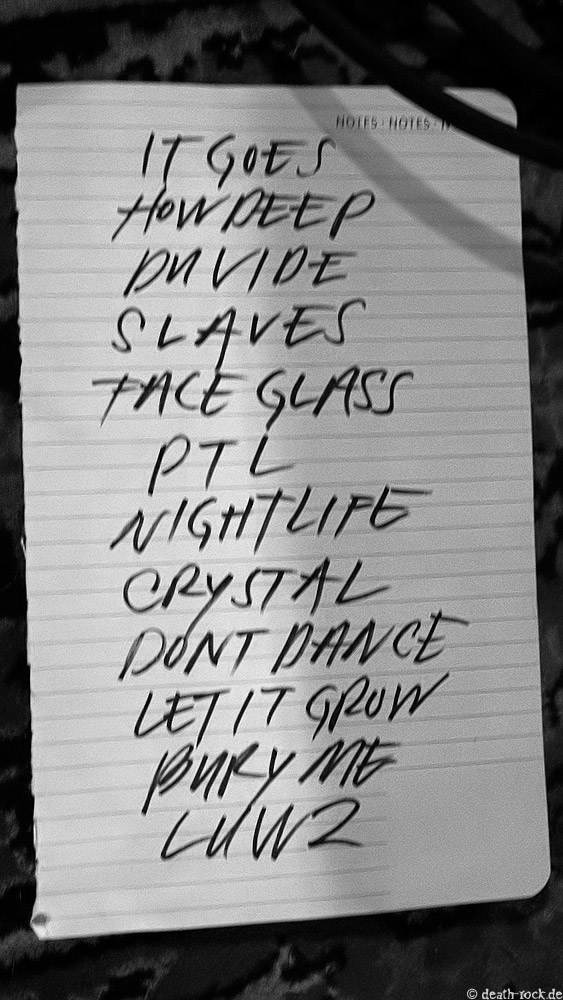 NOTES · NOTES · N
IT GOES
HOW DEEP
DUVIDE
SLAVES
FACE GLASS
PTL
NIGHTLIFE
CRYSTAL
DONT DANCE
LET IT GROW
BURY ME
LUW2
© death-rock.de